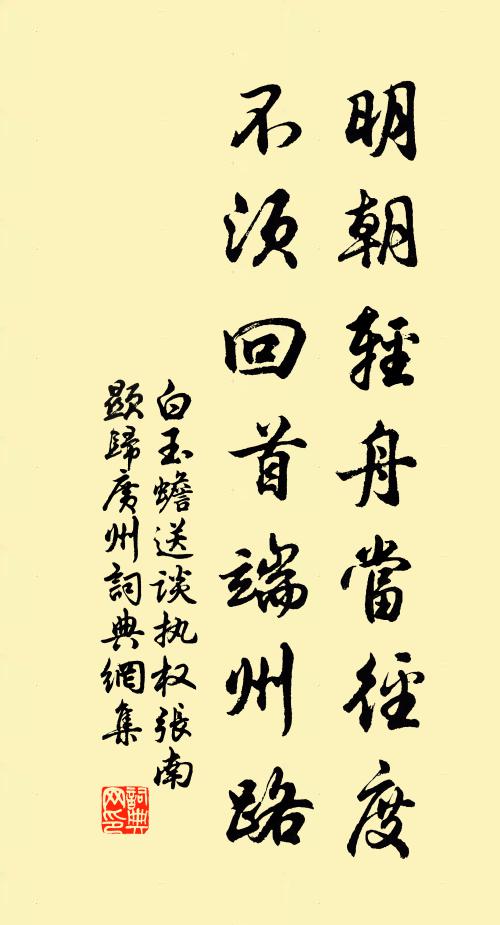 明朝輕舟當徑度
不須回首端州路
白玉蟾送谈执权張南
顯歸廣州詞典網集
詞典網印